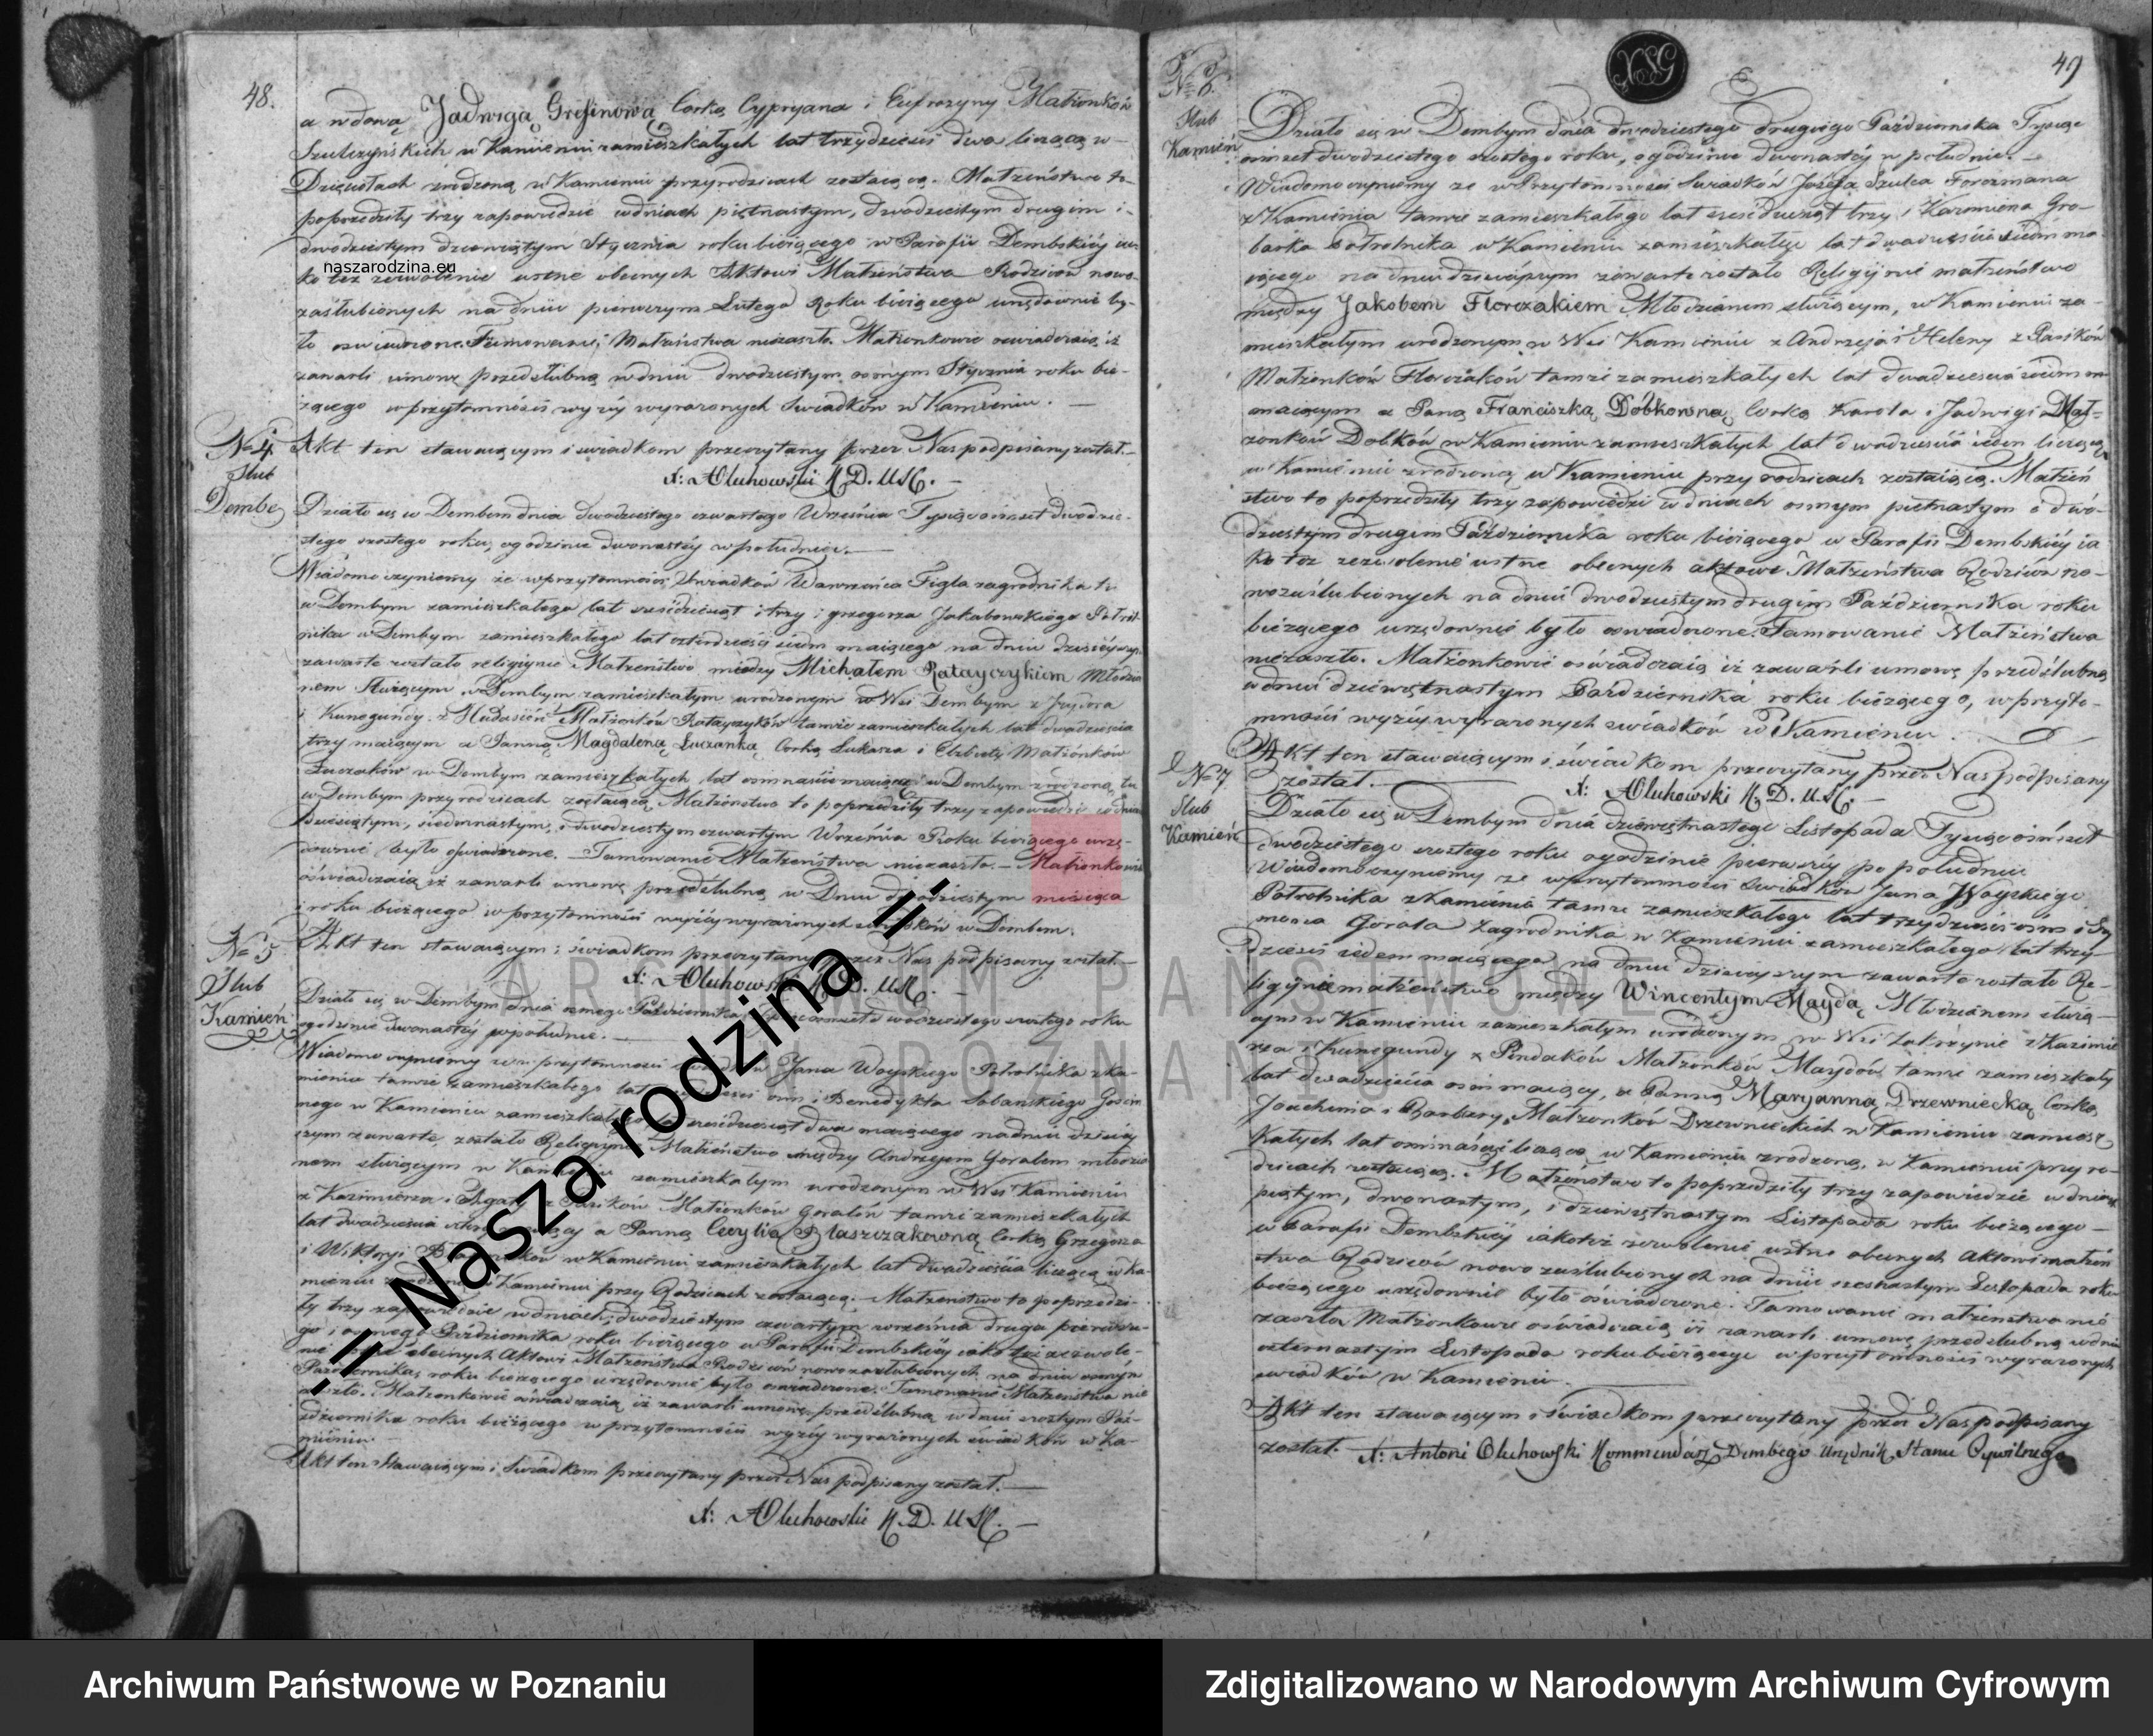 48.
a wdową Jadwigą Gresinową Corką Cypryana i Eufrozyny Małżonków
Szulczyńskich w Kamieniu zamieszkałych lat trzydzieści dwa liczącą w
zrodzoną w Kamieniu przy rodzicach zostaiącą. Małżeństwo to
poprzedziły trzy zapowiedzie w dniach piętnastym, dwudziestym drugim i
dwudziestym dziewiątym Stycznia roku bieżącego w Parafii Dembskiéy ia-
ko też zezwolenie ustne obecnych Aktowi Małżeństwa Rodziców nowo-
naszarodzina.eu
zaślubionych na dniu pierwszym Lutego Roku bieżącego urzędownie by-
ło oświadczone. Tamowanie Małżeństwa niezaszło. Małżonkowie oswiadczaią iż
zawarli umowę przedślubną w dniu dwudziestym osmym Stycznia roku bie-
żącego w przytomności wyżéy wyrażonych Swiadków w Kamieniu.
Akt ten stawaiącym i swiadkom przeczytany przez Nas podpisany został.
X: AOluhowski K.D. USC.
N 4
Slub
Dembe
Działo się w Dembem dnia dwudziestego czwartego Września Tysiąc ośmset dwudzie-
stego szostego roku, o godzinie dwunastéy w południe.
Wiadomo czyniemy że w przytomności Swiadków Wawrzeńca Figla zagrodnika tu
w Dembym zamieszkałego lat sześcdziesiąt i trzy i grzegorza Jakubowskiego Półrol-
nika w Dembym zamieszkałego lat czterdzieści siedm maiącego na dniu dzisiéyszym
zawarte zostało religiynie Małżeństwo między Michałem Rataycykiem Młodzia-
nem służącym w Dembym zamieszkałym urodzonym w Wsi Dembym z Izydora
i Kunegundy z Małżonków Ratayczyków tamże zamieszkałych lat dwadzieścia
trzy maiącym a Panną Magdaleną Łuczanką Corką Łukasza i Elżbiety Małżonków
Łuczaków w Dembym zamieszkałych lat osmnaście maiącą w Dembym zrodzoną tu
w Dembym przy rodzicach zostaiącą. Małżeństwo to poprzedziły trzy zapowiedzie w dniach
dziesiątym, siedmnastym, i dwudziestym czwartym Września Roku bieżącego urzę-
downie było oświadczone. Tamowanie Małżeństwa niezaszło. Małżonkowie
oświadczaią iż zawarli umowę przedślubną w Dniu dwudziestym miesiąca
i roku bieżącego w przytomności wyżéy wyrażonych swiadków w Dembem.
Akt ten stawaiącym i świadkom przeczytany przez Nas podpisany został.
X: AOluhowski K.D. USC.
N 5
Slub
Kamień
Działo się w Dembym dnia osmego Października Tysiąc ośmset dwudziestego szostego roku
o godzinie dwunastéy w południe.
Wiadomo czyniemy że w przytomności Swiadków Jana Woyskiego Półrolnika z Ka-
mienia tamże zamieszkałego lat trzydzieści osm i Benedykta Sobanskiego Gościn-
nego w Kamieniu zamieszkałego lat sześćdziesiąt dwa maiącego na dniu dzisiéy
szym zawarte zostało Religiynie Małżeństwo między Andrzejem Goralem młodzia-
nem służącym w Kamieniu zamieszkałym urodzonym w Wsi Kamieniu
z Kazimierza i Agaty z Pasików Małżonków Goralów tamże zamieszkałych
lat dwadzieścia maiący a Panną Cecylią Błaszczakowną Corką Grzegorza
i Wiktoryi Błaszczaków w Kamieniu zamieszkałych lat dwadzieścia liczącą w Ka-
mieniu zrodzoną w Kamieniu przy Rodzicach zostaiącą. Małżeństwo to poprzedzi-
ły trzy zapowiedzie w dniach, dwudziestym czwartym września druga pierwsze-
go i osmego Października roku bieżącego w Parafii Dembskiéy iako też zezwole-
nie ustne obecnych Aktowi Małżeństwa Rodziców nowozaślubionych na dniu osmym
Października roku bieżącego urzędownie było oswiadczone. Tamowanie Małżeństwa nie
zaszło. Małżonkowie oświadczaią iż zawarli umowę przedślubną w dniu szostym Paź-
dziernika roku bieżącego w przytomności wyżéy wyrażonych świadków w Ka-
mieniu.
Akt ten stawaiącym i Swiadkom przeczytany przez Nas podpisany został.
X: AOluhowski K.D. USC.
-= Nasza rodzina =-
49
XSG
N 6.
Slub
Kamień
Działo się w Dembym dnia dwudziestego drugiego Października Tysiąc
ośmset dwudziestego szostego roku, o godzinie dwunastéy w południe.
Wiadomo czyniemy że w Przytomności Swiadków Józefa Szulca Forszmana
z Kamienia tamże zamieszkałego lat sześćdziesiąt trzy i Kazimierza Gro-
barka Połrolnika w Kamieniu zamieszkałego lat dwadzieścia siedm ma-
iącego na dniu dzisiéyszym zawarte zostało Religiynie małżeństwo
między Jakobem Florczakiem Młodzianem służącym, w Kamieniu za-
mieszkałym urodzonym w Wsi Kamieniu z Andrzeja i Heleny z Pasików
Małżonków Florczaków tamże zamieszkałych lat dwadzieścia siedm
maiącym a Panną Franciszką Dobkowną Corką Karola i Jadwigi Mał-
żonków Dobków w Kamieniu zamieszkałych lat dwadzieścia ieden liczącą
w Kamieniu zrodzoną w Kamieniu przy rodzicach zostaiącą. Małżeń
stwo to poprzedziły trzy zapowiedzi w dniach osmym piętnastym i dwu-
dziestym drugim Października roku bieżącego w Parafii Dembskiéy ia
ko też zezwolenie ustne obecnych aktowi Małżeństwa Rodziców no-
wozaślubionych na dniu dwudziestym drugim Października roku
bieżącego urzędownie było oswiadczone. Tamowanie Małżeństwa
niezaszło. Małżonkowie oświadczaią iż zawarli umowę przedślubną
w dniu dziewiętnastym Października roku bieżącego, w przyto-
mności wyżéy wyrażonych swiadków w Kamieniu.
Akt ten stawaiącym i świadkom przeczytany przez Nas podpisany
został.
X: AOluhowski K.D. USC.
N 7
Slub
Kamień
Działo się w Dembym dnia dziewiętnastego Listopada Tysiąc ośmset
dwudziestego szostego roku o godzinie pierwszéy po południu
Wiadomo czyniemy że w przytomności Swiadków Jana Woyskiego
Połrolnika z Kamienia tamże zamieszkałego lat trzydzieści osm i Szy
mona Gorala Zagrodnika w Kamieniu zamieszkałego lat trzy-
dzieści siedem maiącego na dniu dzisiéyszym zawarte zostało Re-
ligiynie małżeństwo między Wincentym Maydą Młodzianem służą-
cym w Kamieniu zamieszkałym urodzonym w Wsi Zakrzynie z Kazimie
rza i Kunegundy z Pindaków Małżonków Maydów tamże zamieszkały
lat dwadzieścia osm maiący, a Panną Maryanną Drzewniecką Corką
Joachima i Barbary Małżonków Drzewnieckich w Kamieniu zamiesz-
kałych lat osmnaście liczącą w Kamieniu zrodzoną, w Kamieniu przy ro-
dzicach zostaiącą. Małżeństwo to poprzedziły trzy zapowiedzie w dniach
piątym, dwunastym, i dziewiętnastym Listopada roku bieżącego
w Parafii Dembskiéy iakoteż zezwolenie ustne obecnych Aktowi małżeń
stwa Rodziców nowo zaślubionych na dniu szesnastym Listopada roku
bieżącego urzędownie było oświadczone. Tamowanie małżeństwa nie
zaszło Małżonkowie oświadczaią iż zawarli umowę przedślubną w dniu
czternastym Listopada roku bieżącego w przytomności wyrażonych
swiadków w Kamieniu.
Akt ten stawaiącym i świadkom przeczytany przez Nas podpisany
został. X: Antoni Oluhowski Kommendarz Dembego Urzędnik Stanu Cywilnego
ARCHIWUM PAŃSTWOWE
W POZNANIU
Archiwum Państwowe w Poznaniu
Zdigitalizowano w Narodowym Archiwum Cyfrowym